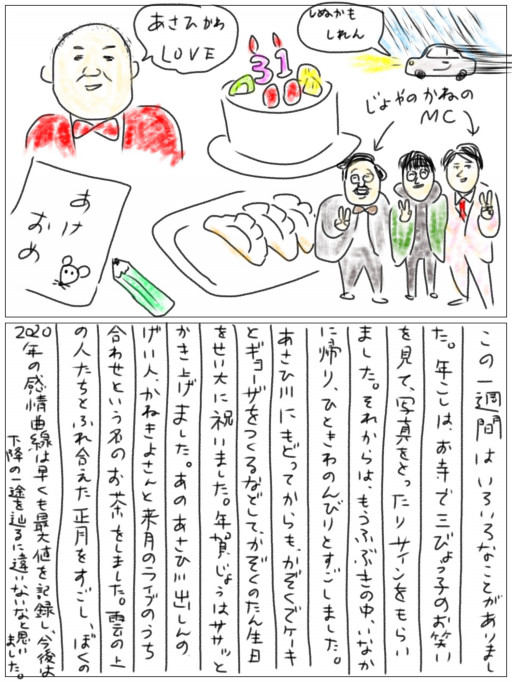 あさひかわ
LOVE
しぬかも
しれん
31
じょやのかねの
MC
あけ
おめ
この一週間はいろいろなことがありまし
た。年こしは、お寺で三びょっ子のお笑い
を見て、写真をとったりサインをもらい
ました。それからは、もうふぶきの中、いなか
に帰り、ひとときわのんびりとすごしました。
あさひ川にもどってからも、かぞくでケーキ
とギョーザをつくるなどして、かぞくのたん生日
をせい大に祝いました。年賀じょうはササッと
かき上げました。あのあさひ川出しんの
げい人、かねきよさんと来月のライブのうち
合わせという名のお茶をしました。雲の上
の人たちとふれ合えた正月をすごし、ぼくの
2020年の感情曲線は早くも最大値を記録し、今後は
下降の一途を辿るに違いないなと思い
ました。